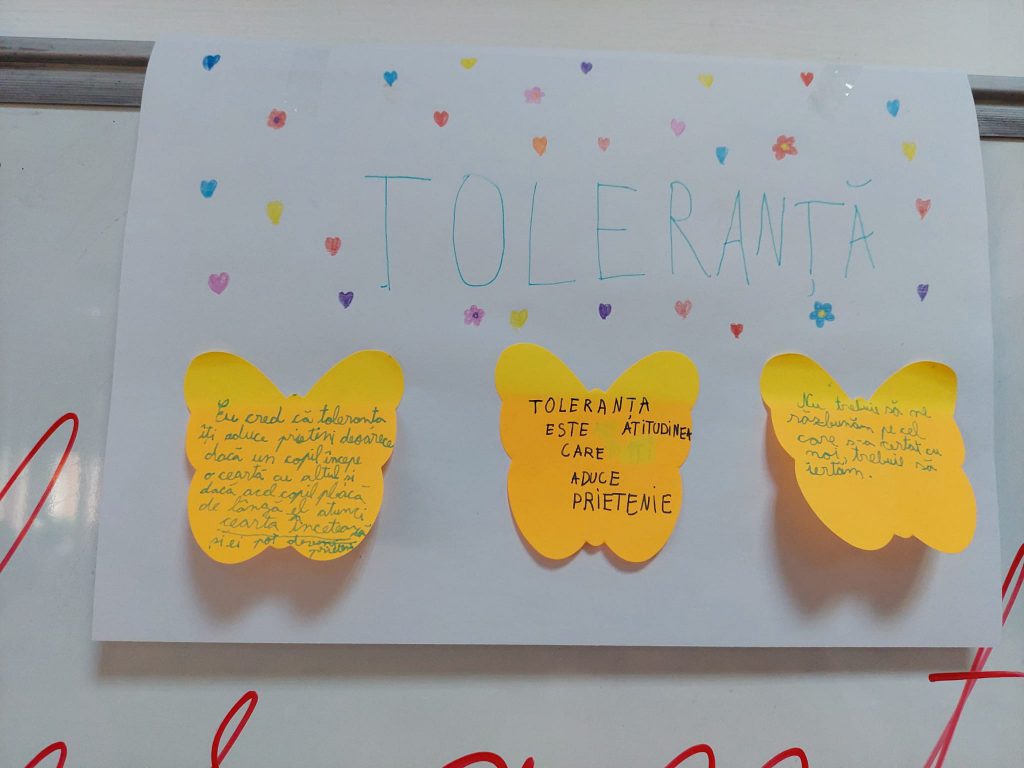 TOLERANȚĂ
Eu cred că toleranța
îți aduce prieteni deoarece
dacă un copil începe
o ceartă cu altul și
dacă acel copil pleacă
de lângă el atunci
cearta încetează
și ei pot deveni
prieteni
TOLERANȚA
ESTE ATITUDINEA
CARE
ADUCE
PRIETENIE
Nu trebuie să ne
răzbunăm pe cel
care s-a certat cu
noi, trebuie să
iertăm.